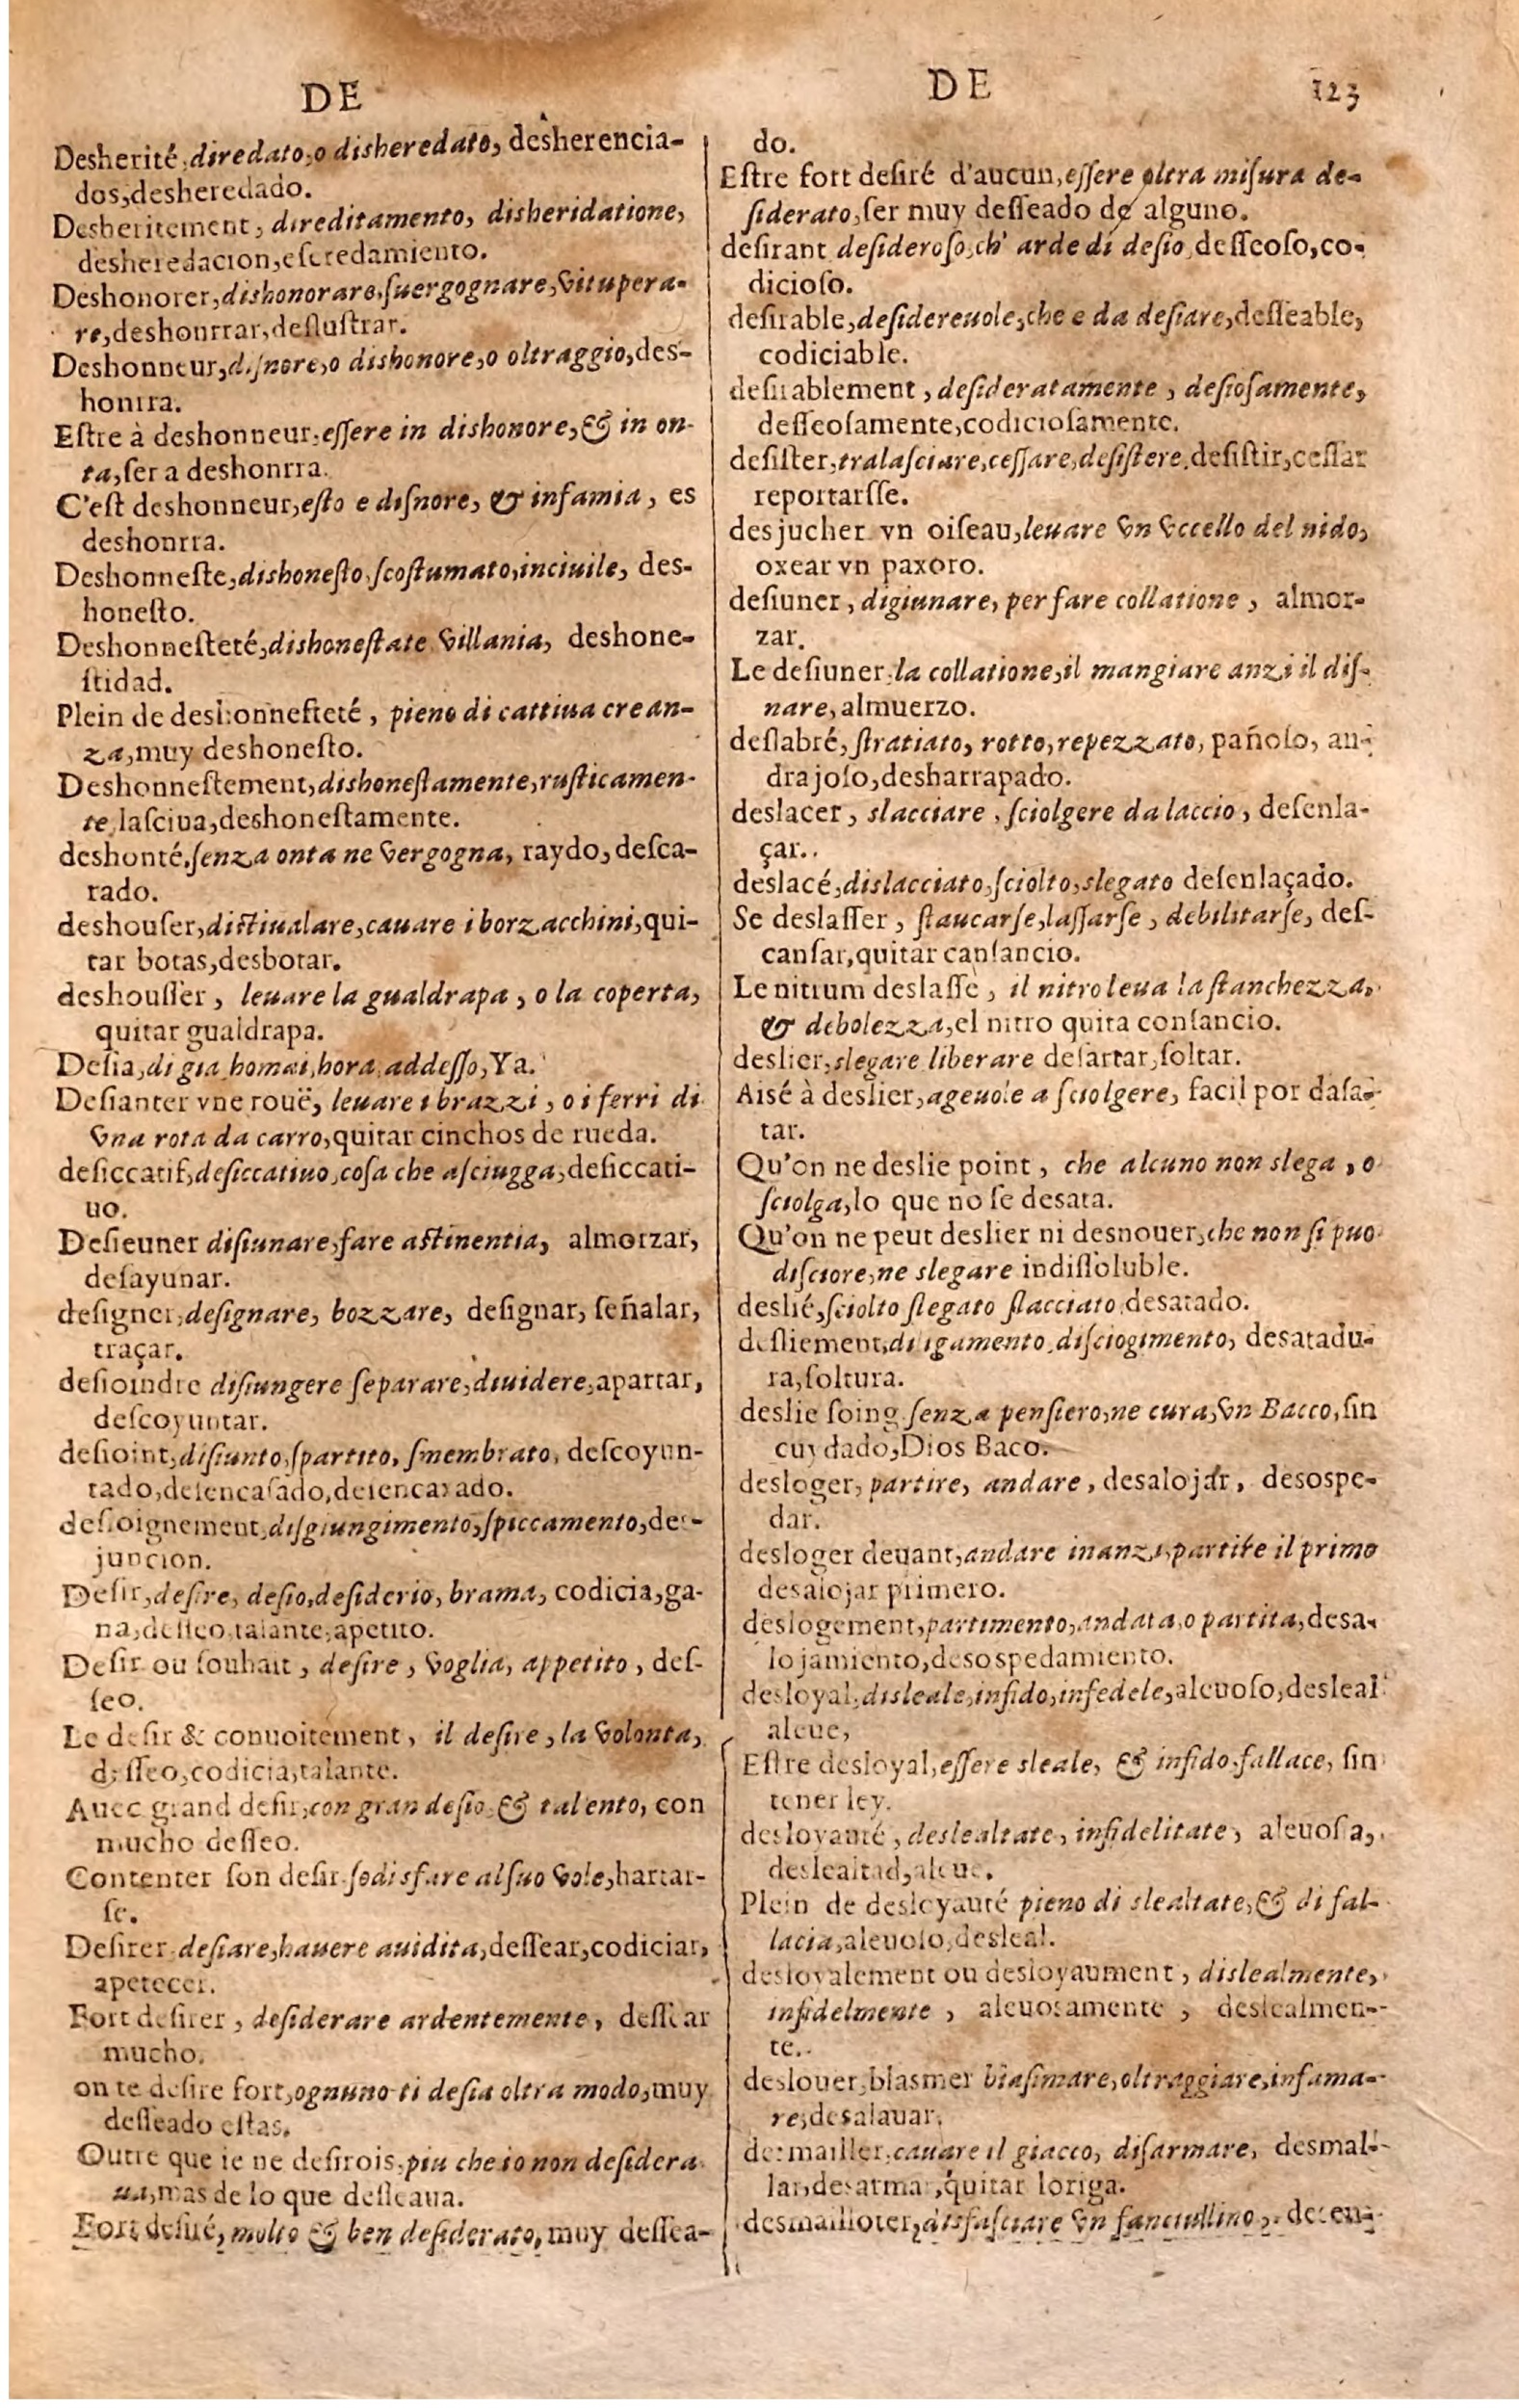 DE
Desherité, diredato, o disheredato, desherencia-
dos, desheredado.
Desheritement, direditamento, disheridatione,
desheredacion, eseredamiento.
Deshonorer, dishonorare, suergognare, vitupera-
re, deshonrrar, deslustrar.
Deshonneur, disnore, o dishonore, o oltraggio, des-
honrra.
Eſtre à deshonneur, eſſere in dishonore, & in on-
ta, ſer a deshonrra.
C'eſt deshonneur, eſto e diſnore, & infamia, es
deshonrra.
Deshonneſte, dishoneſto, ſcoſtumato, inciuile, des-
honeſto.
Deshonneſteté, dishoneſtate villania, deshone-
ſtidad.
Plein de deshonneſteté, pieno di cattiua crean-
za, muy deshoneſto.
Deshonneſtement, dishoneſtamente, ruſticamen-
te, laſciua, deshoneſtamente.
deshonté, ſenza onta ne vergogna, raydo, deſca-
rado.
deshouſer, diſtiualare, cauare i borzacchini, qui-
tar botas, desbotar.
deshouſſer, leuare la gualdrapa, o la coperta,
quitar gualdrapa.
Deſia, di gia, homai, hora, addeſſo, Ya.
Deſianter vne rouë, leuare i brazzi, o i ferri di
vna rota da carro, quitar cinchos de rueda.
deſiccatif, deſiccatiuo, coſa che aſciugga, deſiccati-
uo.
Deſieuner diſiunare, fare aſtinentia, almorzar,
deſayunar.
deſigner, deſignare, bozzare, deſignar, ſeñalar,
traçar.
deſioindre diſiungere ſeparare, diuidere, apartar,
deſcoyuntar.
deſioint, diſiunto, ſpartito, ſmembrato, deſcoyun-
tado, deſencaſado, deſencaxado.
deſioignement, diſgiungimento, ſpiccamento, deſ-
juncion.
Deſir, deſire, deſio, deſiderio, brama, codicia, ga-
na, deſſeo, talante, apetito.
Deſir ou ſouhait, deſire, voglia, appetito, deſ-
ſeo.
Le deſir & conuoitement, il deſire, la volonta,
deſſeo, codicia, talante.
Auec grand deſir, con gran deſio, & talento, con
mucho deſſeo.
Contenter ſon deſir ſodisfare al ſuo vole, hartar-
ſe.
Deſirer, deſiare, hauere auidita, deſſear, codiciar,
apetecer.
Fort deſirer, deſiderare ardentemente, deſſear
mucho.
on te deſire fort, ognuno ti deſia oltra modo, muy
deſſeado eſtas.
Outre que ie ne deſirois, piu che io non deſidera
ua, mas de lo que deſſeaua.
Fort deſiré, molto & ben deſiderato, muy deſſea-
DE 123
do.
Eſtre fort deſiré d'aucun, eſſere oltra miſura de-
ſiderato, ſer muy deſſeado de alguno.
deſirant deſideroſo, ch' arde di deſio, deſſeoſo, co-
dicioſo.
deſirable, deſidereuole, che e da deſiare, deſſeable,
codiciable.
deſirablement, deſideratamente, deſioſamente,
deſſeoſamente, codicioſamente.
deſiſter, tralaſciare, ceſſare, deſiſtere, deſiſtir, ceſſar
reportarſſe.
desjucher vn oiſeau, leuare vn vccello del nido,
oxear vn paxoro.
deſiuner, digiunare, per fare collatione, almor-
zar.
Le deſiuner, la collatione, il mangiare anzi il diſ-
nare, almuerzo.
deslabré, ſtratiato, rotto, repezzato, pañoſo, an-
drajoſo, desharrapado.
deslacer, slacciare, ſciolgere da laccio, deſenla-
çar.
deslacé, dislacciato, ſciolto, slegato deſenlaçado.
Se deslaſſer, ſtaucarſe, laſſarſe, debilitarſe, deſ-
canſar, quitar canſancio.
Le nitrum deslaſſe, il nitro leua la ſtanchezza,
& debolezza, el nitro quita conſancio.
deslier, slegare liberare deſartar, ſoltar.
Aisé à deslier, ageuole a ſciolgere, facil por daſa-
tar.
Qu'on ne deslie point, che alcuno non slega, o
ſciolga, lo que no ſe desata.
Qu'on ne peut deslier ni desnouer, che non ſi puo
diſciore, ne slegare indiſſoluble.
deslié, ſciolto ſlegato ſlacciato, desatado.
desliement, diligamento, diſciogimento, desatadu-
ra, ſoltura.
deslie ſoing ſenza penſiero, ne cura, vn Bacco, ſin
cuydado, Dios Baco.
desloger, partire, andare, desalojar, desospe-
dar.
desloger deuant, andare inanzi, partire il primo
desalojar primero.
deslogement, partimento, andata, o partita, desa-
lojamiento, desospedamiento.
desloyal, disleale, infido, infedele, aleuoſo, desleal
aleue,
Eſtre desloyal, eſſere sleale, & infido, fallace, ſin
tener ley.
desloyauté, deslealtate, infidelitate, aleuoſia,
deslealtad, aleue.
Plein de desloyauté pieno di slealtate, & di fal-
lacia, aleuoſo, desleal.
desloyalement ou desloyaument, dislealmente,
infidelmente, aleuoſamente, deslealmen-
te.
deslouer, blasmer biaſimare, oltraggiare, infama-
re, desalauar.
desmailler, cauare il giacco, diſarmare, desmal-
lar, desarmar, quitar loriga.
desmailloter, disfaſciare vn fanciullino, deſen-